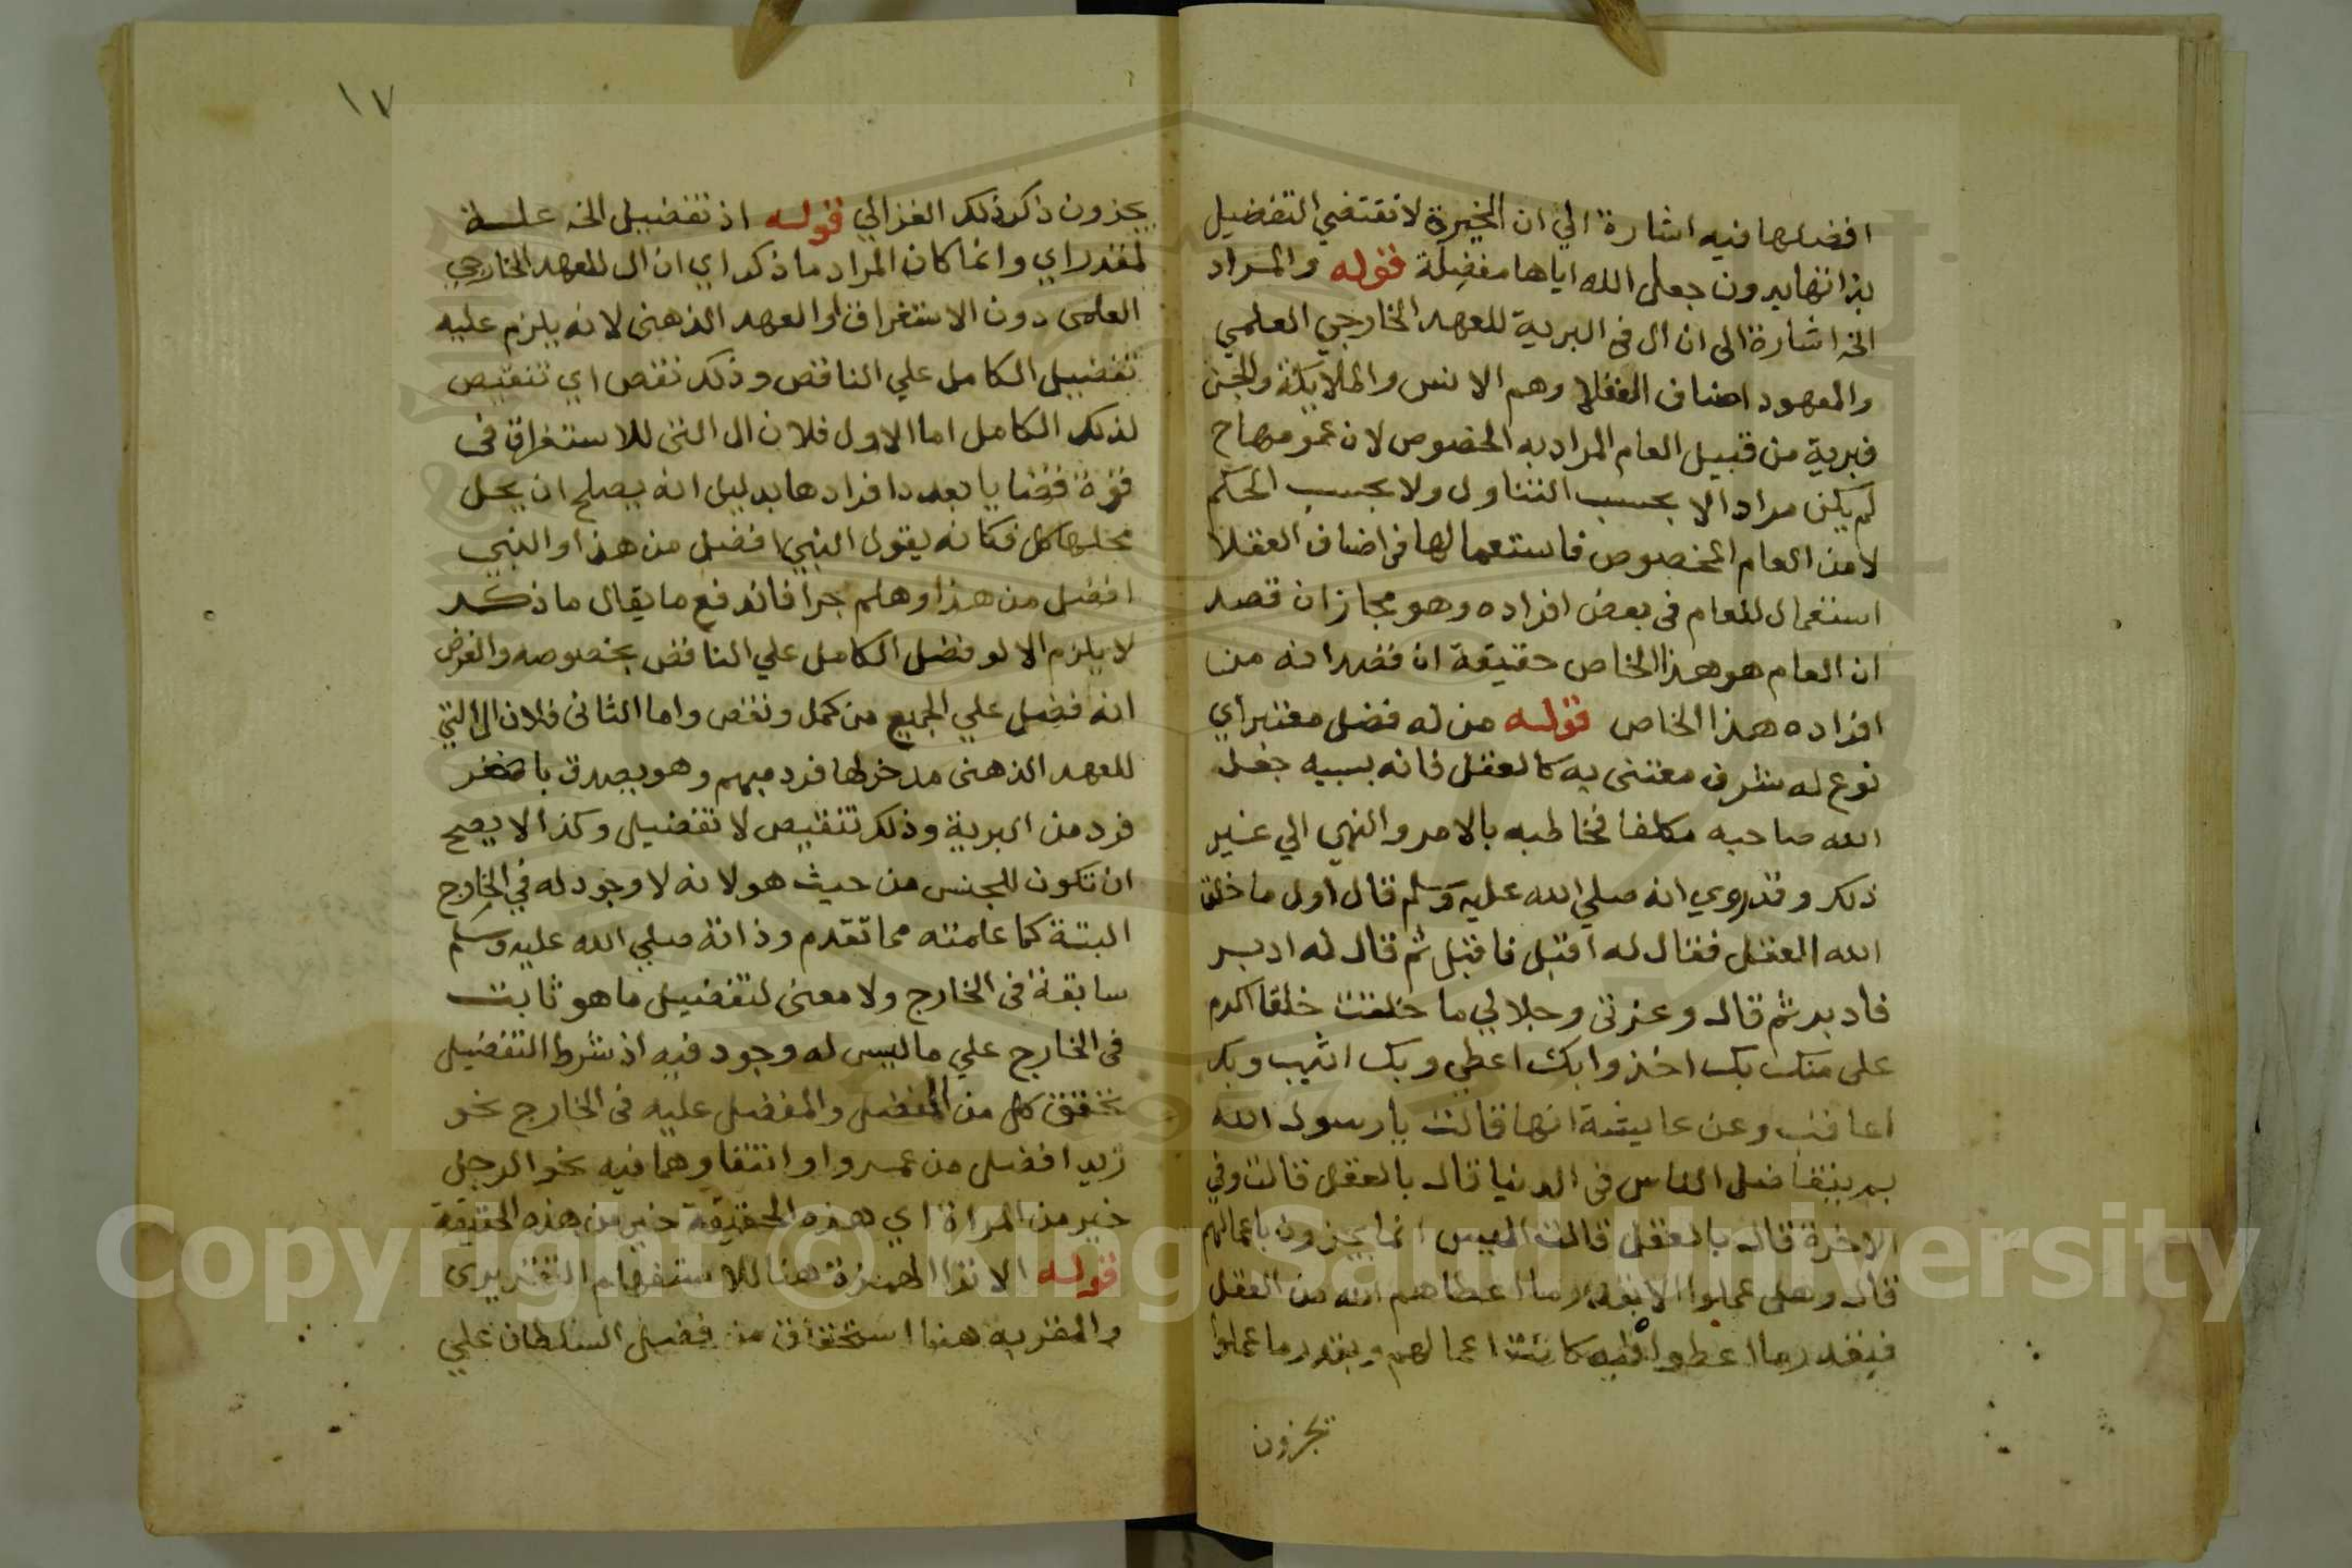 افضلها فيه اشارة الي ان الخيرة لا تقتضي التفضيل
بذاتها بدون جعل الله اياها مفضلة قوله والمراد
الخ اشارة الى ان ال في البرية للعهد الخارجي العلمي
والمعهود اصناف العقلا وهم الانس والملايكة والجن
فبرية من قبيل العام المراد به الخصوص لان عمومها ح
لم يكن مرادا لا بحسب التناول ولا بحسب الحكم
لا من العام المخصوص فاستعمالها في اصناف العقلا
استعمال للعام في بعض افراده وهو مجاز ان قصد
ان العام هو هذا الخاص حقيقة ان قصد انه من
افراده هذا الخاص قوله من له فضل معتبر اي
نوع له شرف معتنى به كالعقل فانه بسببه جعل
الله صاحبه مكلفا فخاطبه بالامر والنهي الي غير
ذلك وقد روي انه صلي الله عليه وسلم قال اول ما خلق
الله العقل فقال له اقبل فاقبل ثم قال له ادبر
فادبر ثم قال وعزتي وجلالي ما خلقت خلقا اكرم
على منك بك اخذ وابك اعطي وبك اثيب وبك
اعاقب وعن عايشة انها قالت يا رسول الله
بم يتفاضل الناس في الدنيا قال بالعقل قالت وفي
الاخرة قال بالعقل قالت اليس انما يجزون باعمالهم
قال وهل عملوا الا بقدر ما اعطاهم الله من العقل
فبقدر ما اعطوا فيه كانت اعمالهم وبقدر ما عملوا
يجزون
١٧
يجزون ذكر ذلك الغزالي قوله اذ تفضيل الخ علة
لمقدر اي وانما كان المراد ما ذكر اي ان ال للعهد الخارجي
العلمى دون الاستغراق او العهد الذهنى لانه يلزم عليه
تفضيل الكامل علي الناقص وذلك نقص اي تنقيص
لذلك الكامل اما الاول فلان ال التى للاستغراق في
قوة قضايا بعدد افرادها بدليل انه يصلح ان يحل
محلها كل فكانه يقول النبي افضل من هذا والنبي
افضل من هذا وهلم جرا فاندفع ما يقال ما ذكر
لا يلزم الا لو فضل الكامل علي الناقص بخصوصه والغرض
انه فضل علي الجميع من كمل ونقص واما الثانى فلان ال التي
للعهد الذهنى مدخولها فرد مبهم وهو يصدق باصغر
فرد من البرية وذلك تنقيص لا تفضيل وكذا لا يصح
ان تكون للجنس من حيث هو لانه لا وجود له في الخارج
البتة كما علمته مما تقدم وذاته صلي الله عليه وسلم
سابقة في الخارج ولا معنى لتفضيل ما هو ثابت
في الخارج علي ما ليس له وجود فيه اذ شرط التفضيل
تحقق كل من المفضل والمفضل عليه في الخارج نحو
زيد افضل من عمرو او انتفاوهما فيه نحو الرجل
خير من المراة اي هذه الحقيقة خير من هذه الحقيقة
قوله الا ترا الهمزة هنا للاستفهام التقريرى
والمقر به هنا استحقاق من فضل السلطان علي